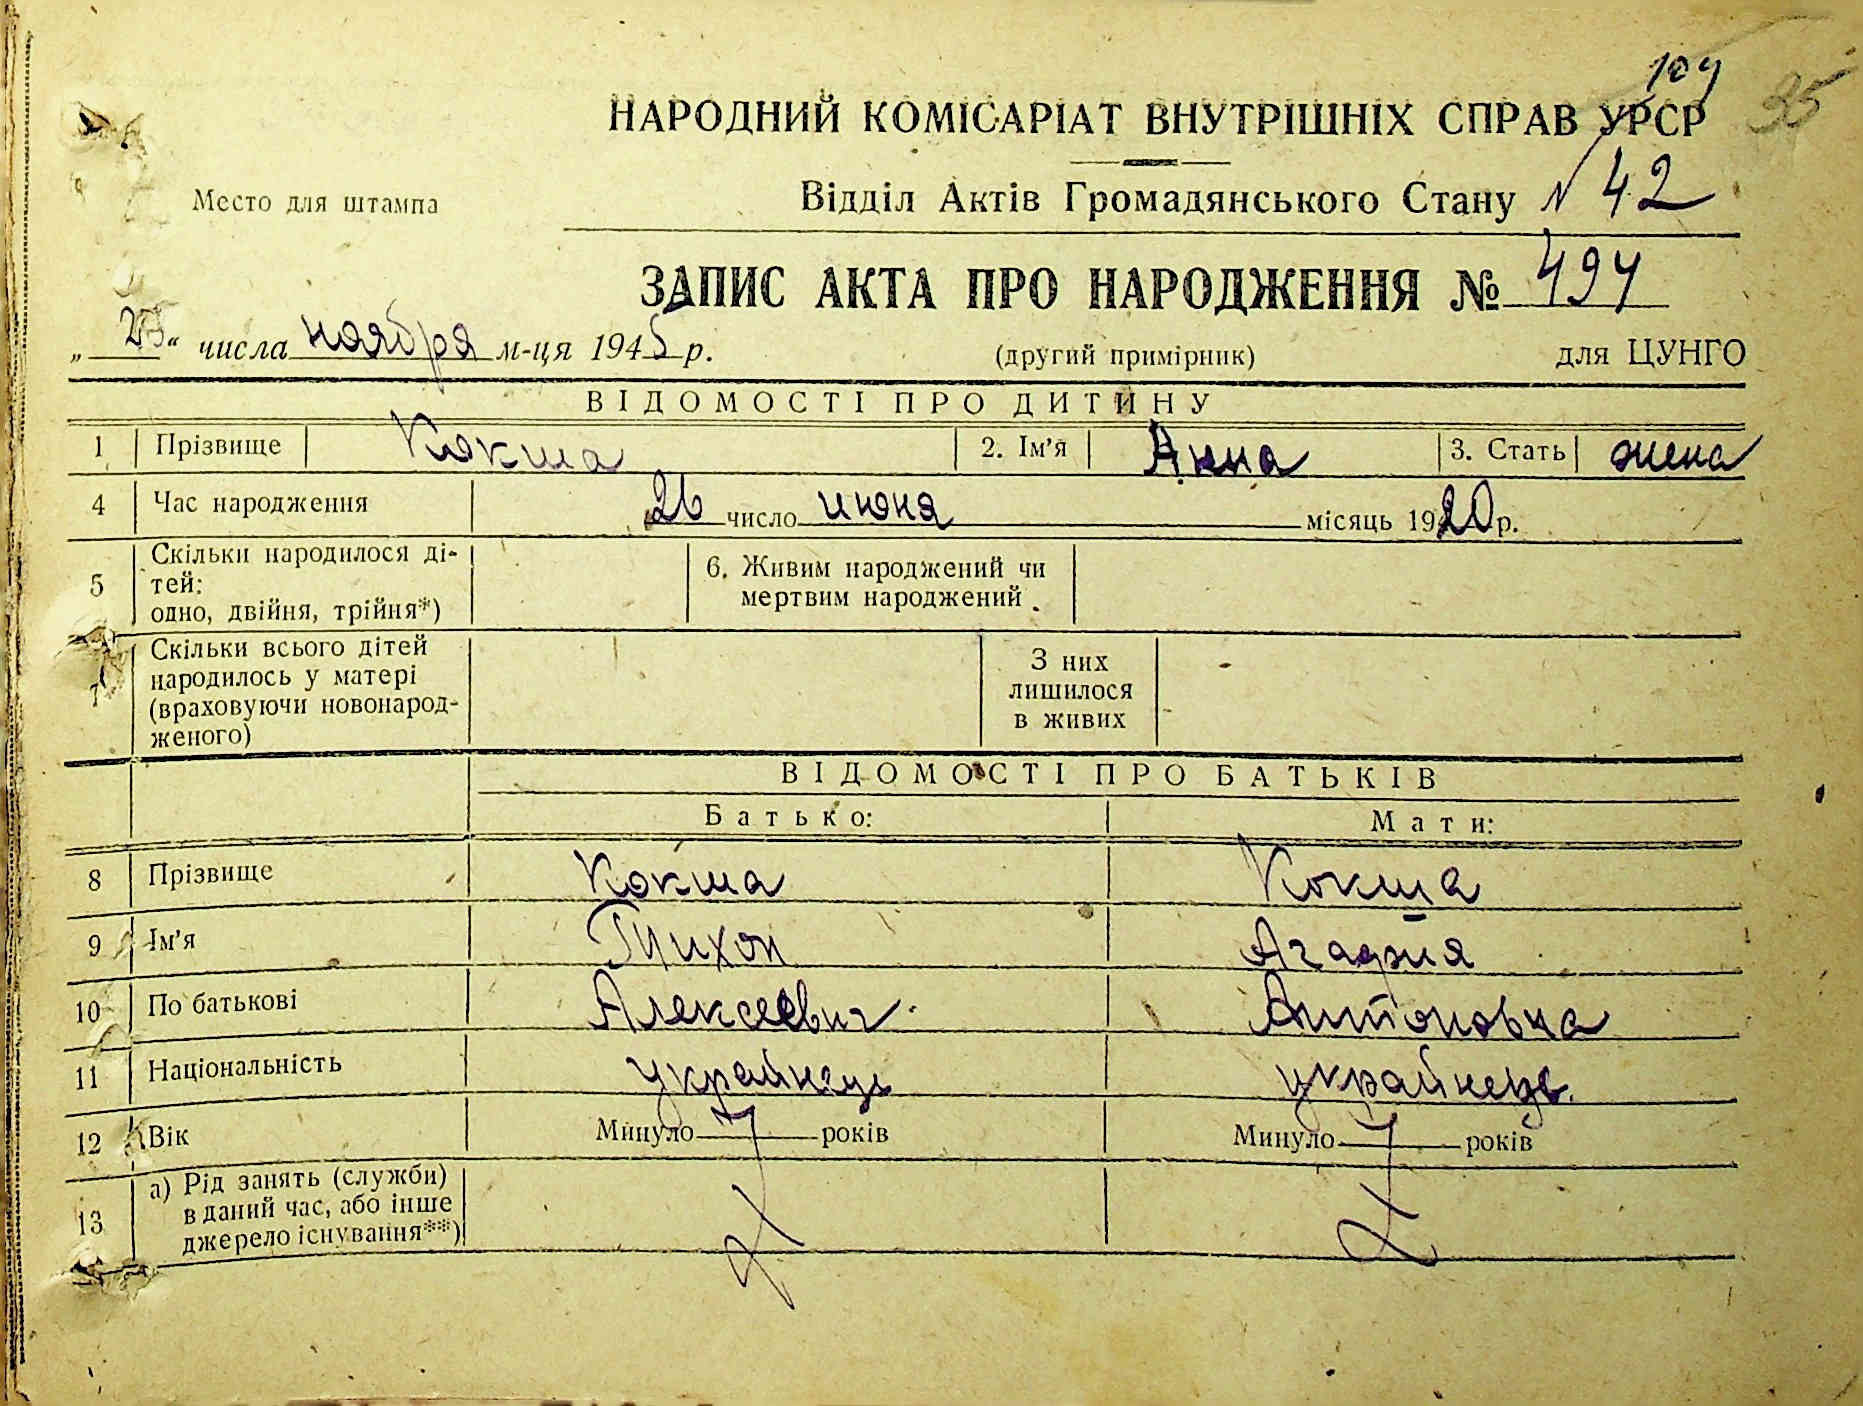 109
35
НАРОДНИЙ КОМІСАРІАТ ВНУТРІШНІХ СПРАВ УРСР
Место для штампа
Відділ Актів Громадянського Стану N 42
ЗАПИС АКТА ПРО НАРОДЖЕННЯ № 494
„ “ числа ноября м-ця 1945 р. (другий примірник) для ЦУНГО
ВІДОМОСТІ ПРО ДИТИНУ
1 Прізвище Кокша 2. Ім'я Анна 3. Стать жена
4 Час народження 26 число июня місяць 1920 р.
5 Скільки народилося ді-
тей:
одно, двійня, трійня*)
6. Живим народжений чи
мертвим народжений
7 Скільки всього дітей
народилось у матері
(враховуючи новонарод-
женого)
З них
лишилося
в живих
ВІДОМОСТІ ПРО БАТЬКІВ
Батько: Мати:
8 Прізвище Кокша Кокша
9 Ім'я Тихон Агафия
10 По батькові Алексеевич Антоновна
11 Національність українець українець
12 Вік Минуло років Минуло років
13 а) Рід занять (служби)
в даний час, або інше
джерело існування**)